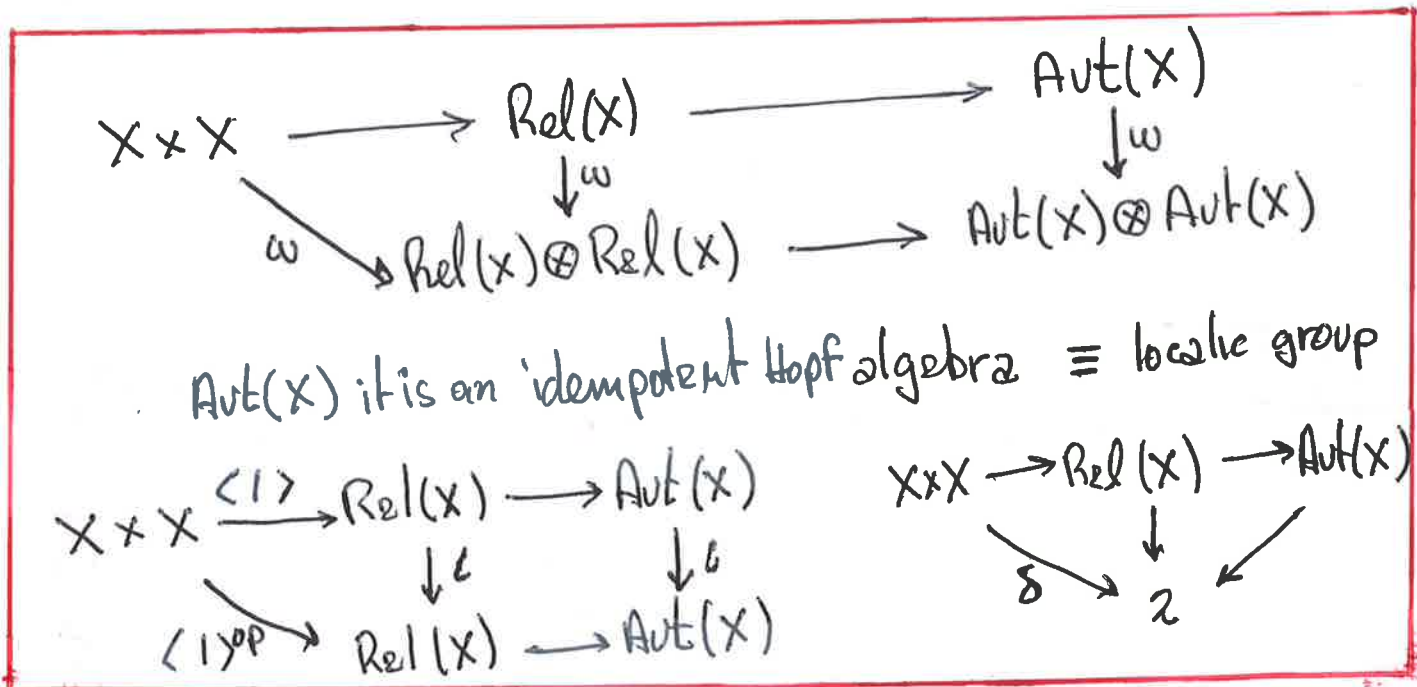 X × X → Rel(X) → Aut(X)
↓ω ↓ω
ω Rel(X)⊗Rel(X) → Aut(X)⊗Aut(X)
Aut(X) it is an idempotent Hopf algebra ≡ localic group
X × X <|> → Rel(X) → Aut(X)
↓ι ↓ι
<|>op Rel(X) → Aut(X)
X×X → Rel(X) → Aut(X)
δ 2